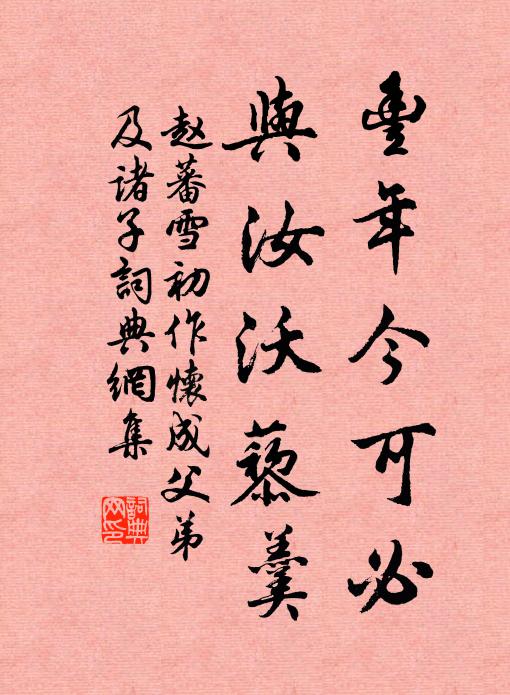 豐年今可必
與汝沃藜羹
赵蕃雪初作懷成父弟
及诸子詞典網集
詞典网印